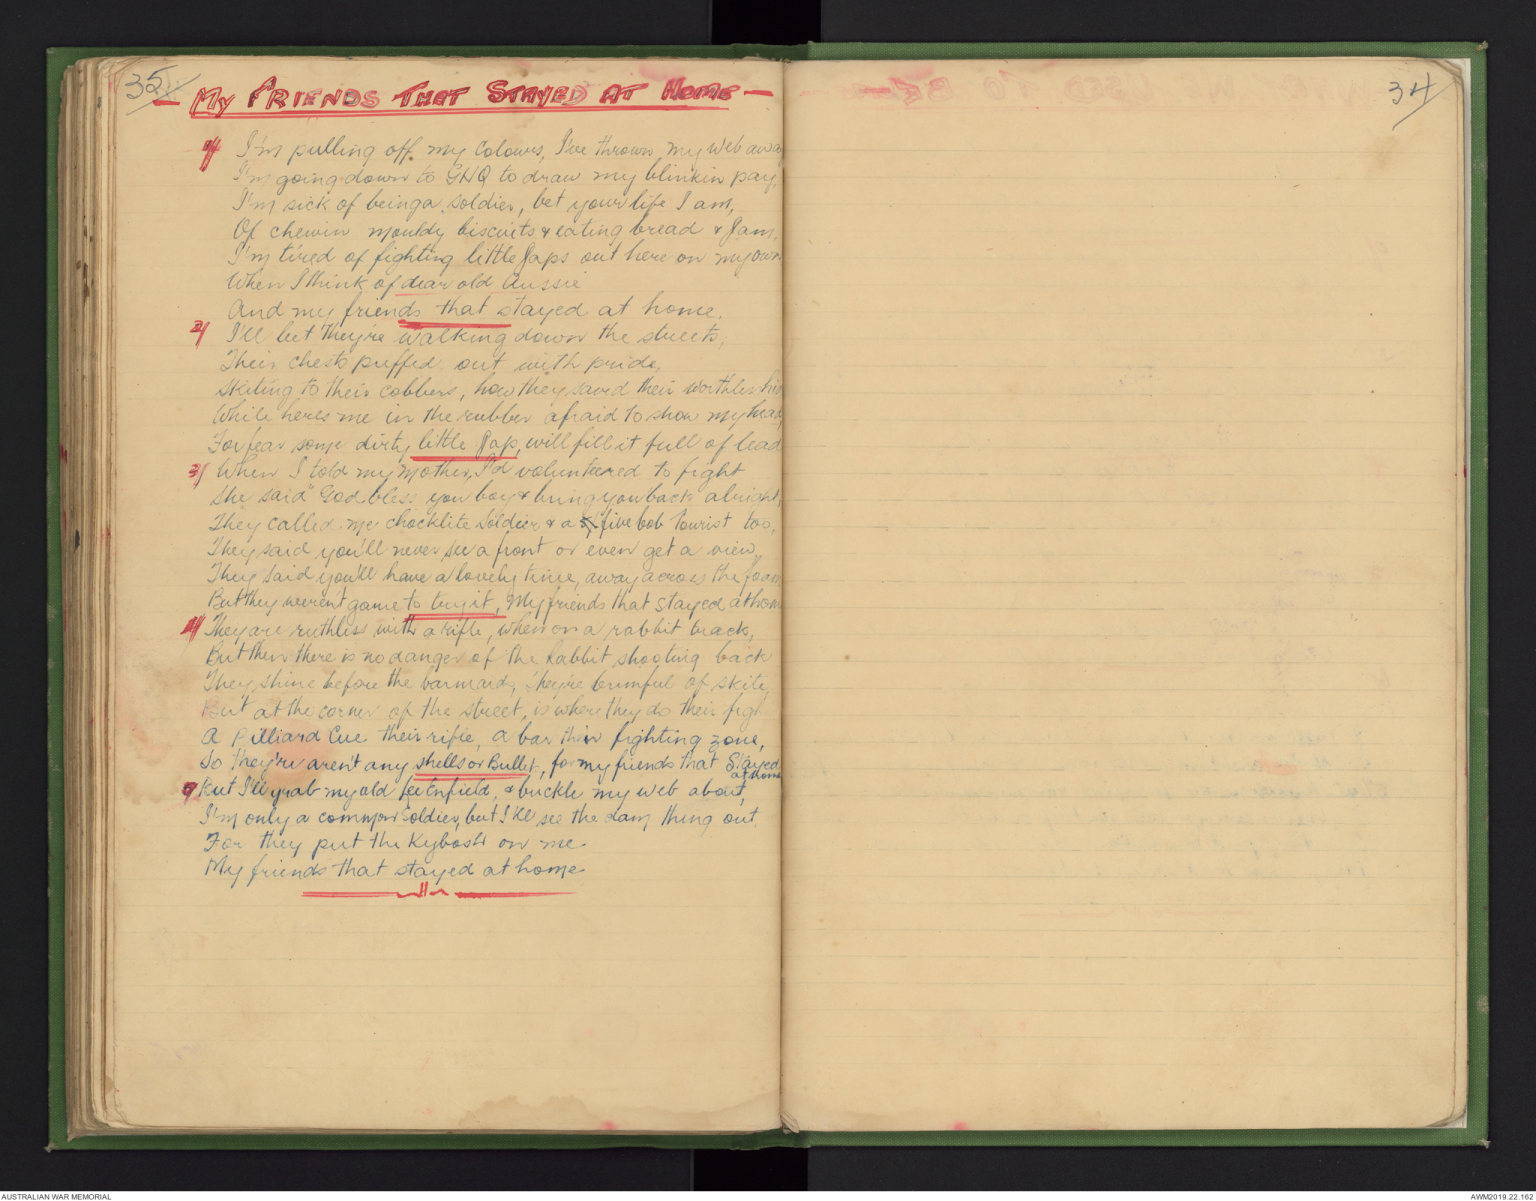 35
— My FRIENDS THAT STAYED AT HOME —
1/ I'm pulling off my colours, I've thrown my web away
I'm going down to GHQ to draw my blinkin pay,
I'm sick of being a soldier, bet your life I am,
Of chewin mouldy biscuits & eating bread & Jam,
I'm tired of fighting little Japs out here on my own
When I think of dear old Aussie
And my friends that stayed at home.
2/ I'll bet They're walking down the streets,
Their chests puffed out with pride,
Skiting to their cobbers, how they saved their worthless hide
While heres me in the rubber afraid to show my head,
For fear some dirty little Jap, will fill it full of lead
3/ When I told my Mother, I'd volunteered to fight
She said "God bless you boy & bring you back alright,
They called me chocklite Soldier & a five bob Tourist too,
They said you'll never see a front or even get a view,
They said you'll have a lovely time, away across the foam
But they weren't game to try it, My friends that stayed at home
4/ They are ruthless with a rifle, when on a rabbit track,
But then there is no danger of the Rabbit shooting back
They shine before the barmaid, They're brimful of skite,
But at the corner of the street, is where they do their fight
A Billiard Cue their rifle, a bar their fighting zone,
So They're aren't any shells or Bullet, for my friends that Stayed
at home
5/ But I'll grab my old Lee Enfield, & buckle my web about,
I'm only a common soldier, but I'll see the dam thing out.
For they put the Kybosh on me
My friends that stayed at home
34
AUSTRALIAN WAR MEMORIAL
AWM2019.22.162